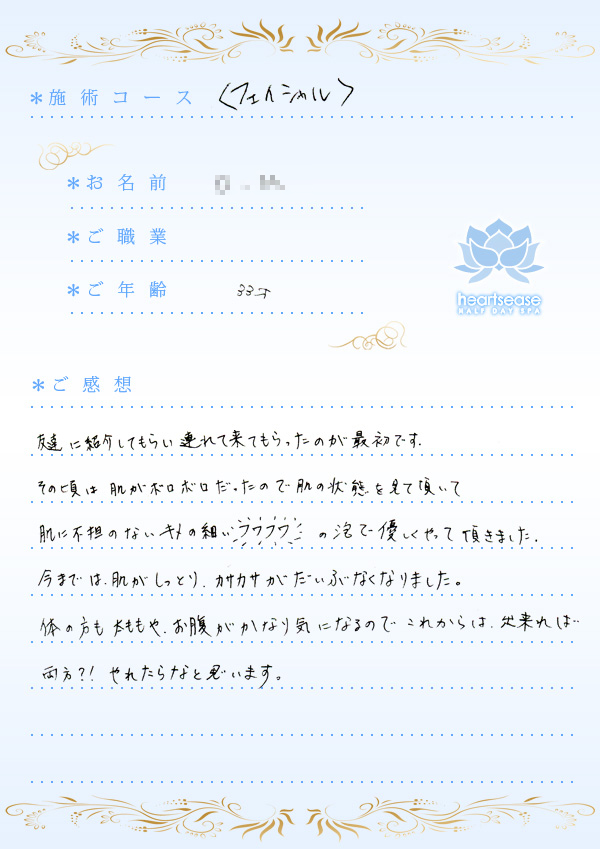 ＊施術コース 〈フェイシャル〉
＊お名前
＊ご職業
＊ご年齢 33才
heartsease
HALF DAY SPA
＊ご感想
友達に紹介してもらい連れて来てもらったのが最初です.
その頃は肌がボロボロだったので肌の状態を見て頂いて
肌に不担のないキメの細いフワフワの泡で優しくやって頂きました.
今までは、肌がしっとり、カサカサがだいぶなくなりました。
体の方も太ももや、お腹がかなり気になるのでこれからは、出来れば
両方?! やれたらなと思います。